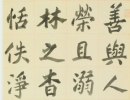 善與人
榮且溺
林之杳
恬佚淨